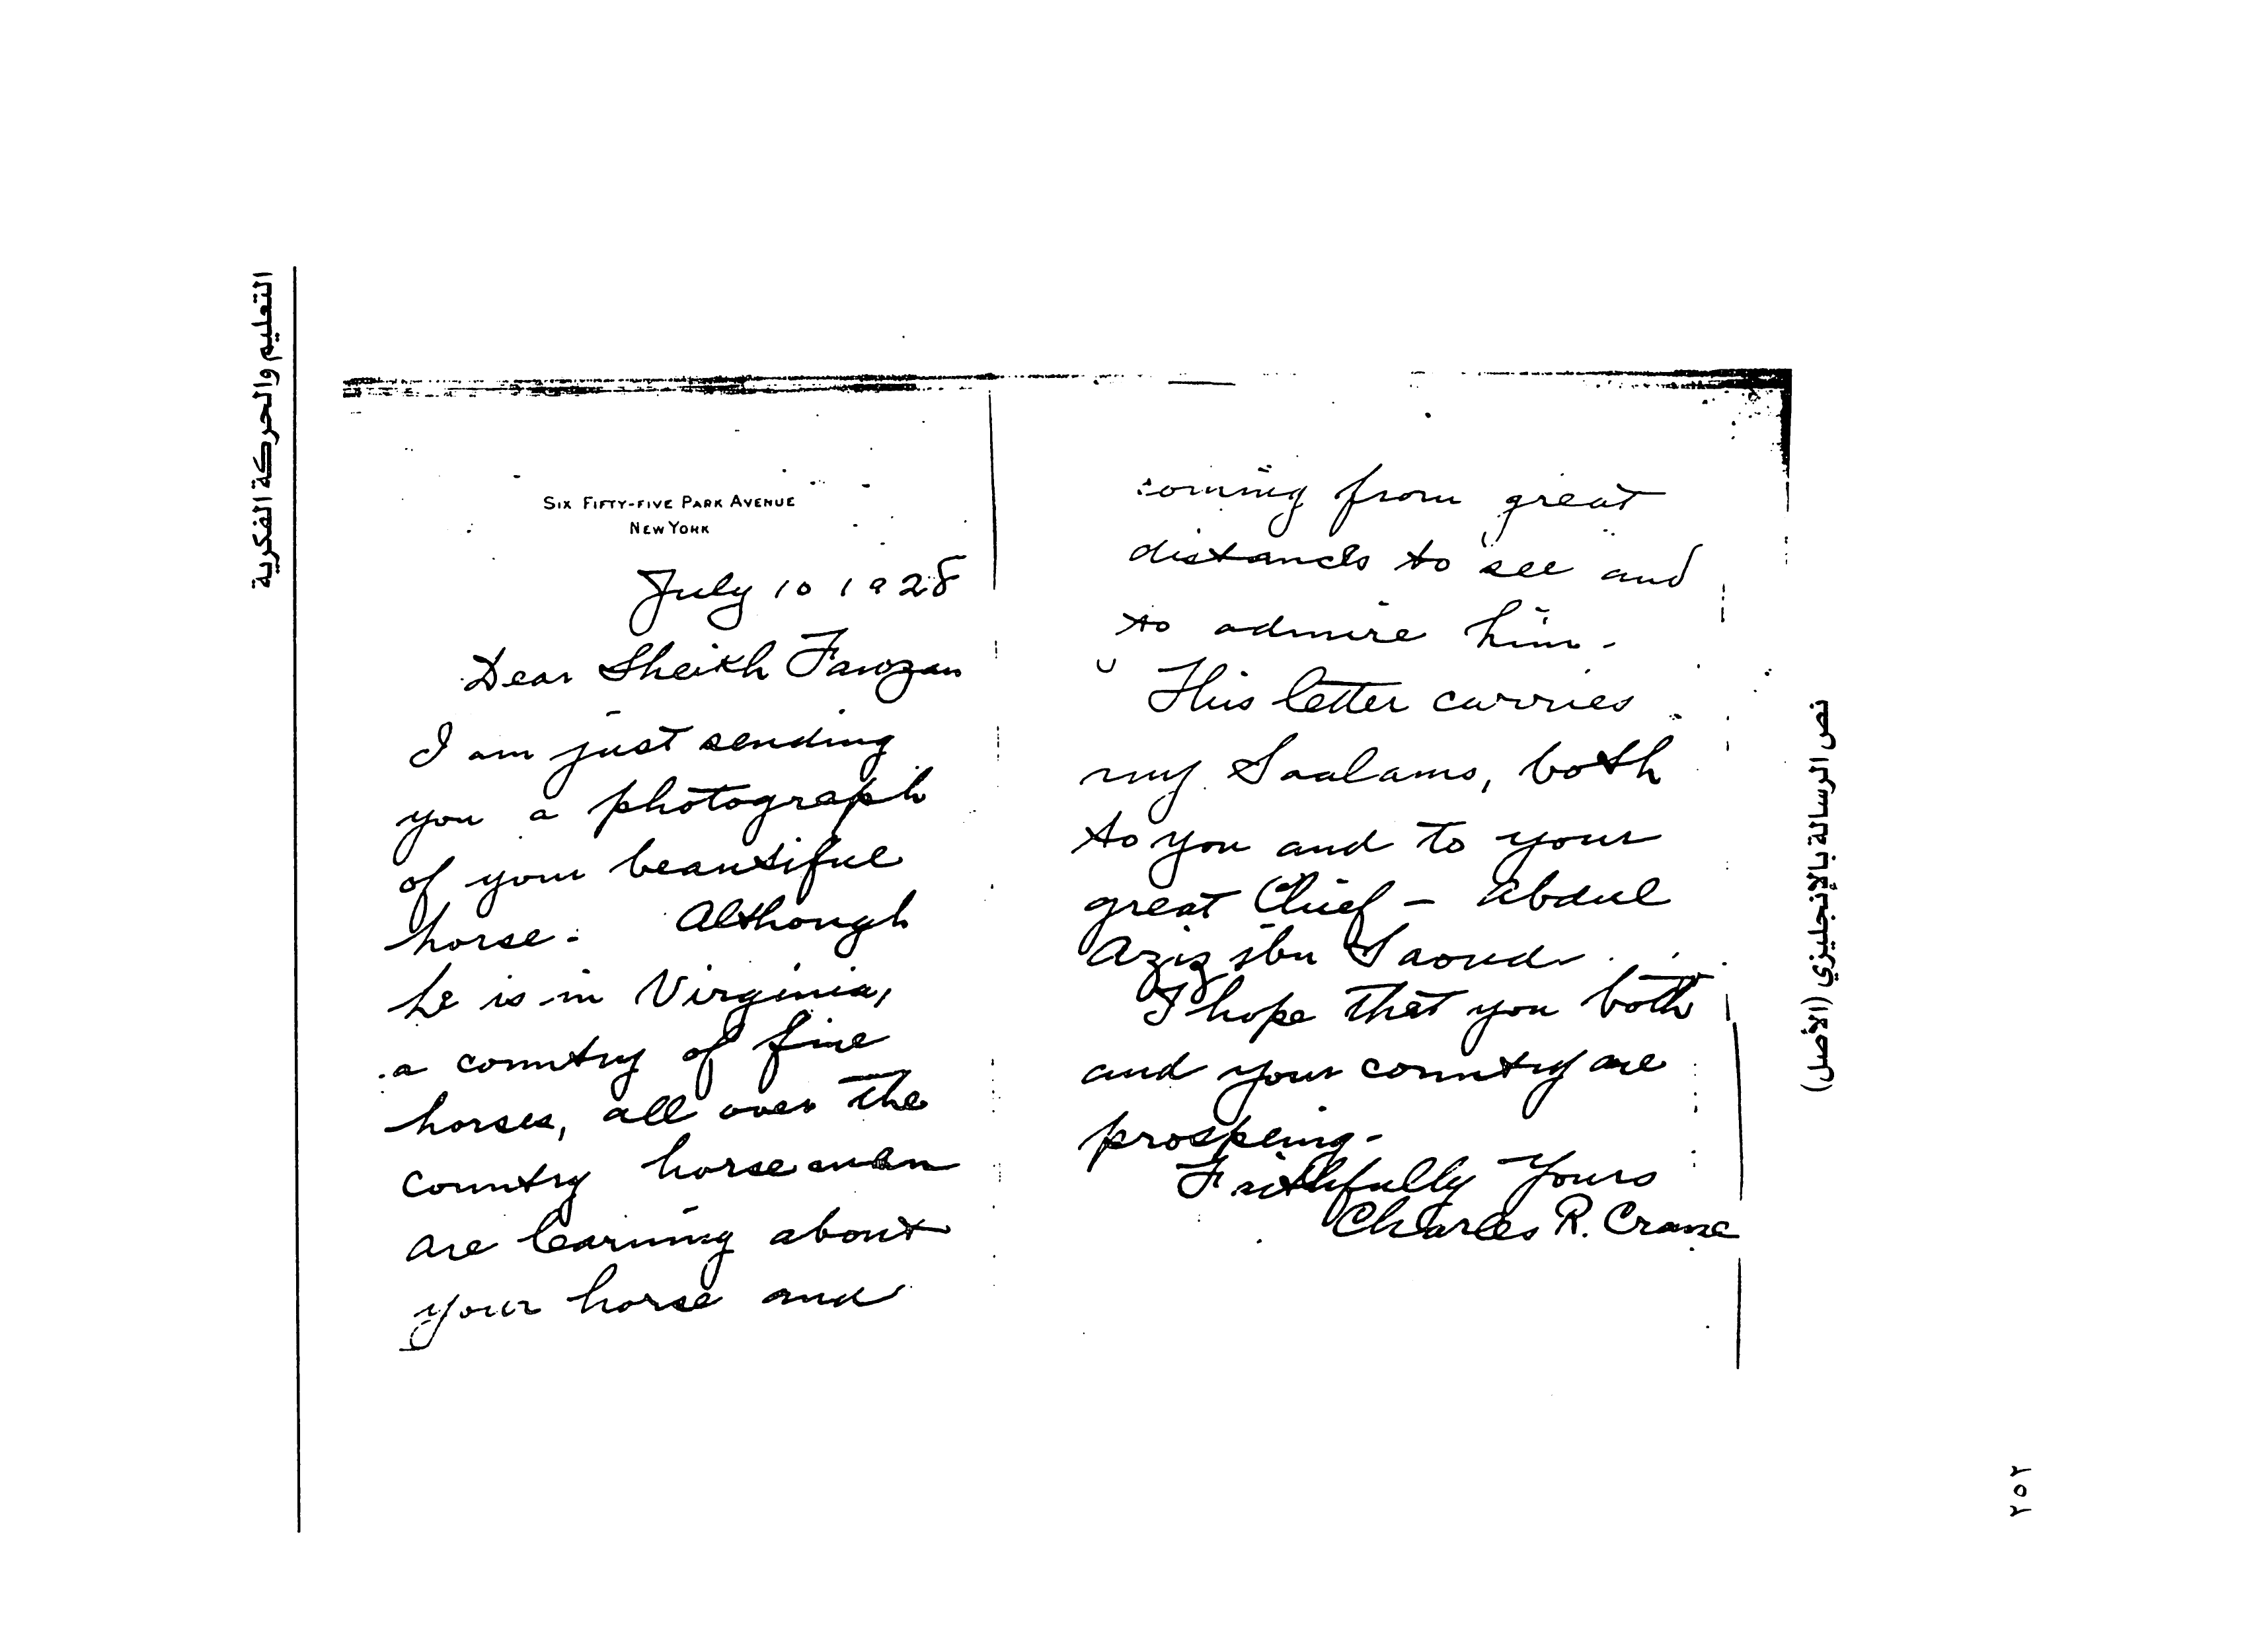 التعليم والحركة الفكرية
SIX FIFTY-FIVE PARK AVENUE
NEW YORK
July 10 1928
Dear Sheikh Fawzan
I am just sending
you a photograph
of your beautiful
horse. Although
he is in Virginia,
a country of fine
horses, all over the
country horsemen
are learning about
your horse and
coming from great
distances to see and
to admire him.
This letter carries
my Saalams, both
to you and to your
great Chief - Abdul
Aziz ibn Saoud
I hope that you both
and your country are
prospeing-
Faithfully Yours
Charles R. Crane
نص الرسالة بالإنجليزي (الأصل)
٢٥٢